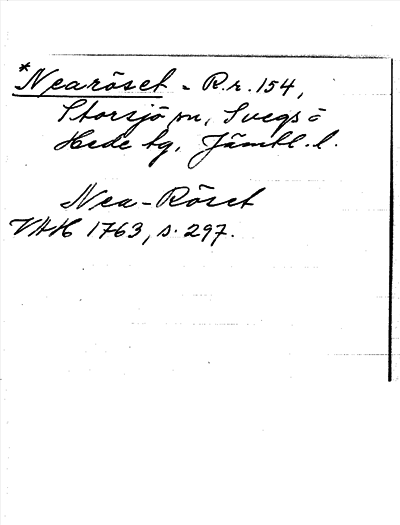 *Nearöset - R.r. 154,
Storsjö sn, Svegs o
Hede tg, Jämtl. l.
Nea-Röset
VAH 1763, s. 297.